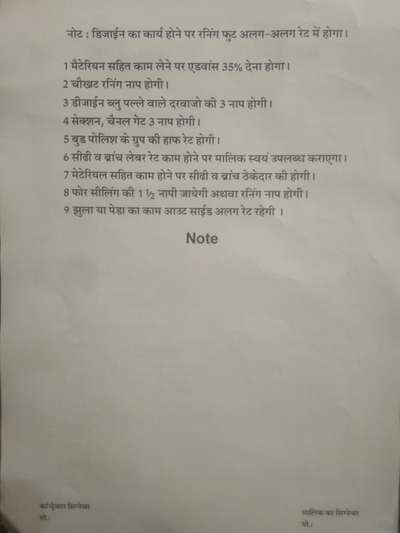 नोट : डिजाईन का कार्य होने पर रनिंग फुट अलग-अलग रेट में होगा।
1 मैटेरियन सहित काम लेने पर एडवांस 35% देना होगा।
2 चौखट रनिंग नाप होगी।
3 डीजाईन ब्लु पल्ले वाले दरवाजो की 3 नाप होगी।
4 सेक्शन, चैनल गेट 3 नाप होगी।
5 बुड पोलिश के ग्रुप की हाफ रेट होगी।
6 सीढी व ब्रांच लेबर रेट काम होने पर मालिक स्वयं उपलब्ध कराएगा।
7 मेटेरियल सहित काम होने पर सीढी व ब्रांच ठेकेदार की होगी।
8 फोर सीलिंग की 1 ½ नापी जायेगी अथवा रनिंग नाप होगी।
9 झुला या पेडा का काम आउट साईड अलग रेट रहेगी ।
Note
कांन्ट्रेक्टर सिग्नेचर
मो.:
मालिक का सिग्नेचर
मो.: